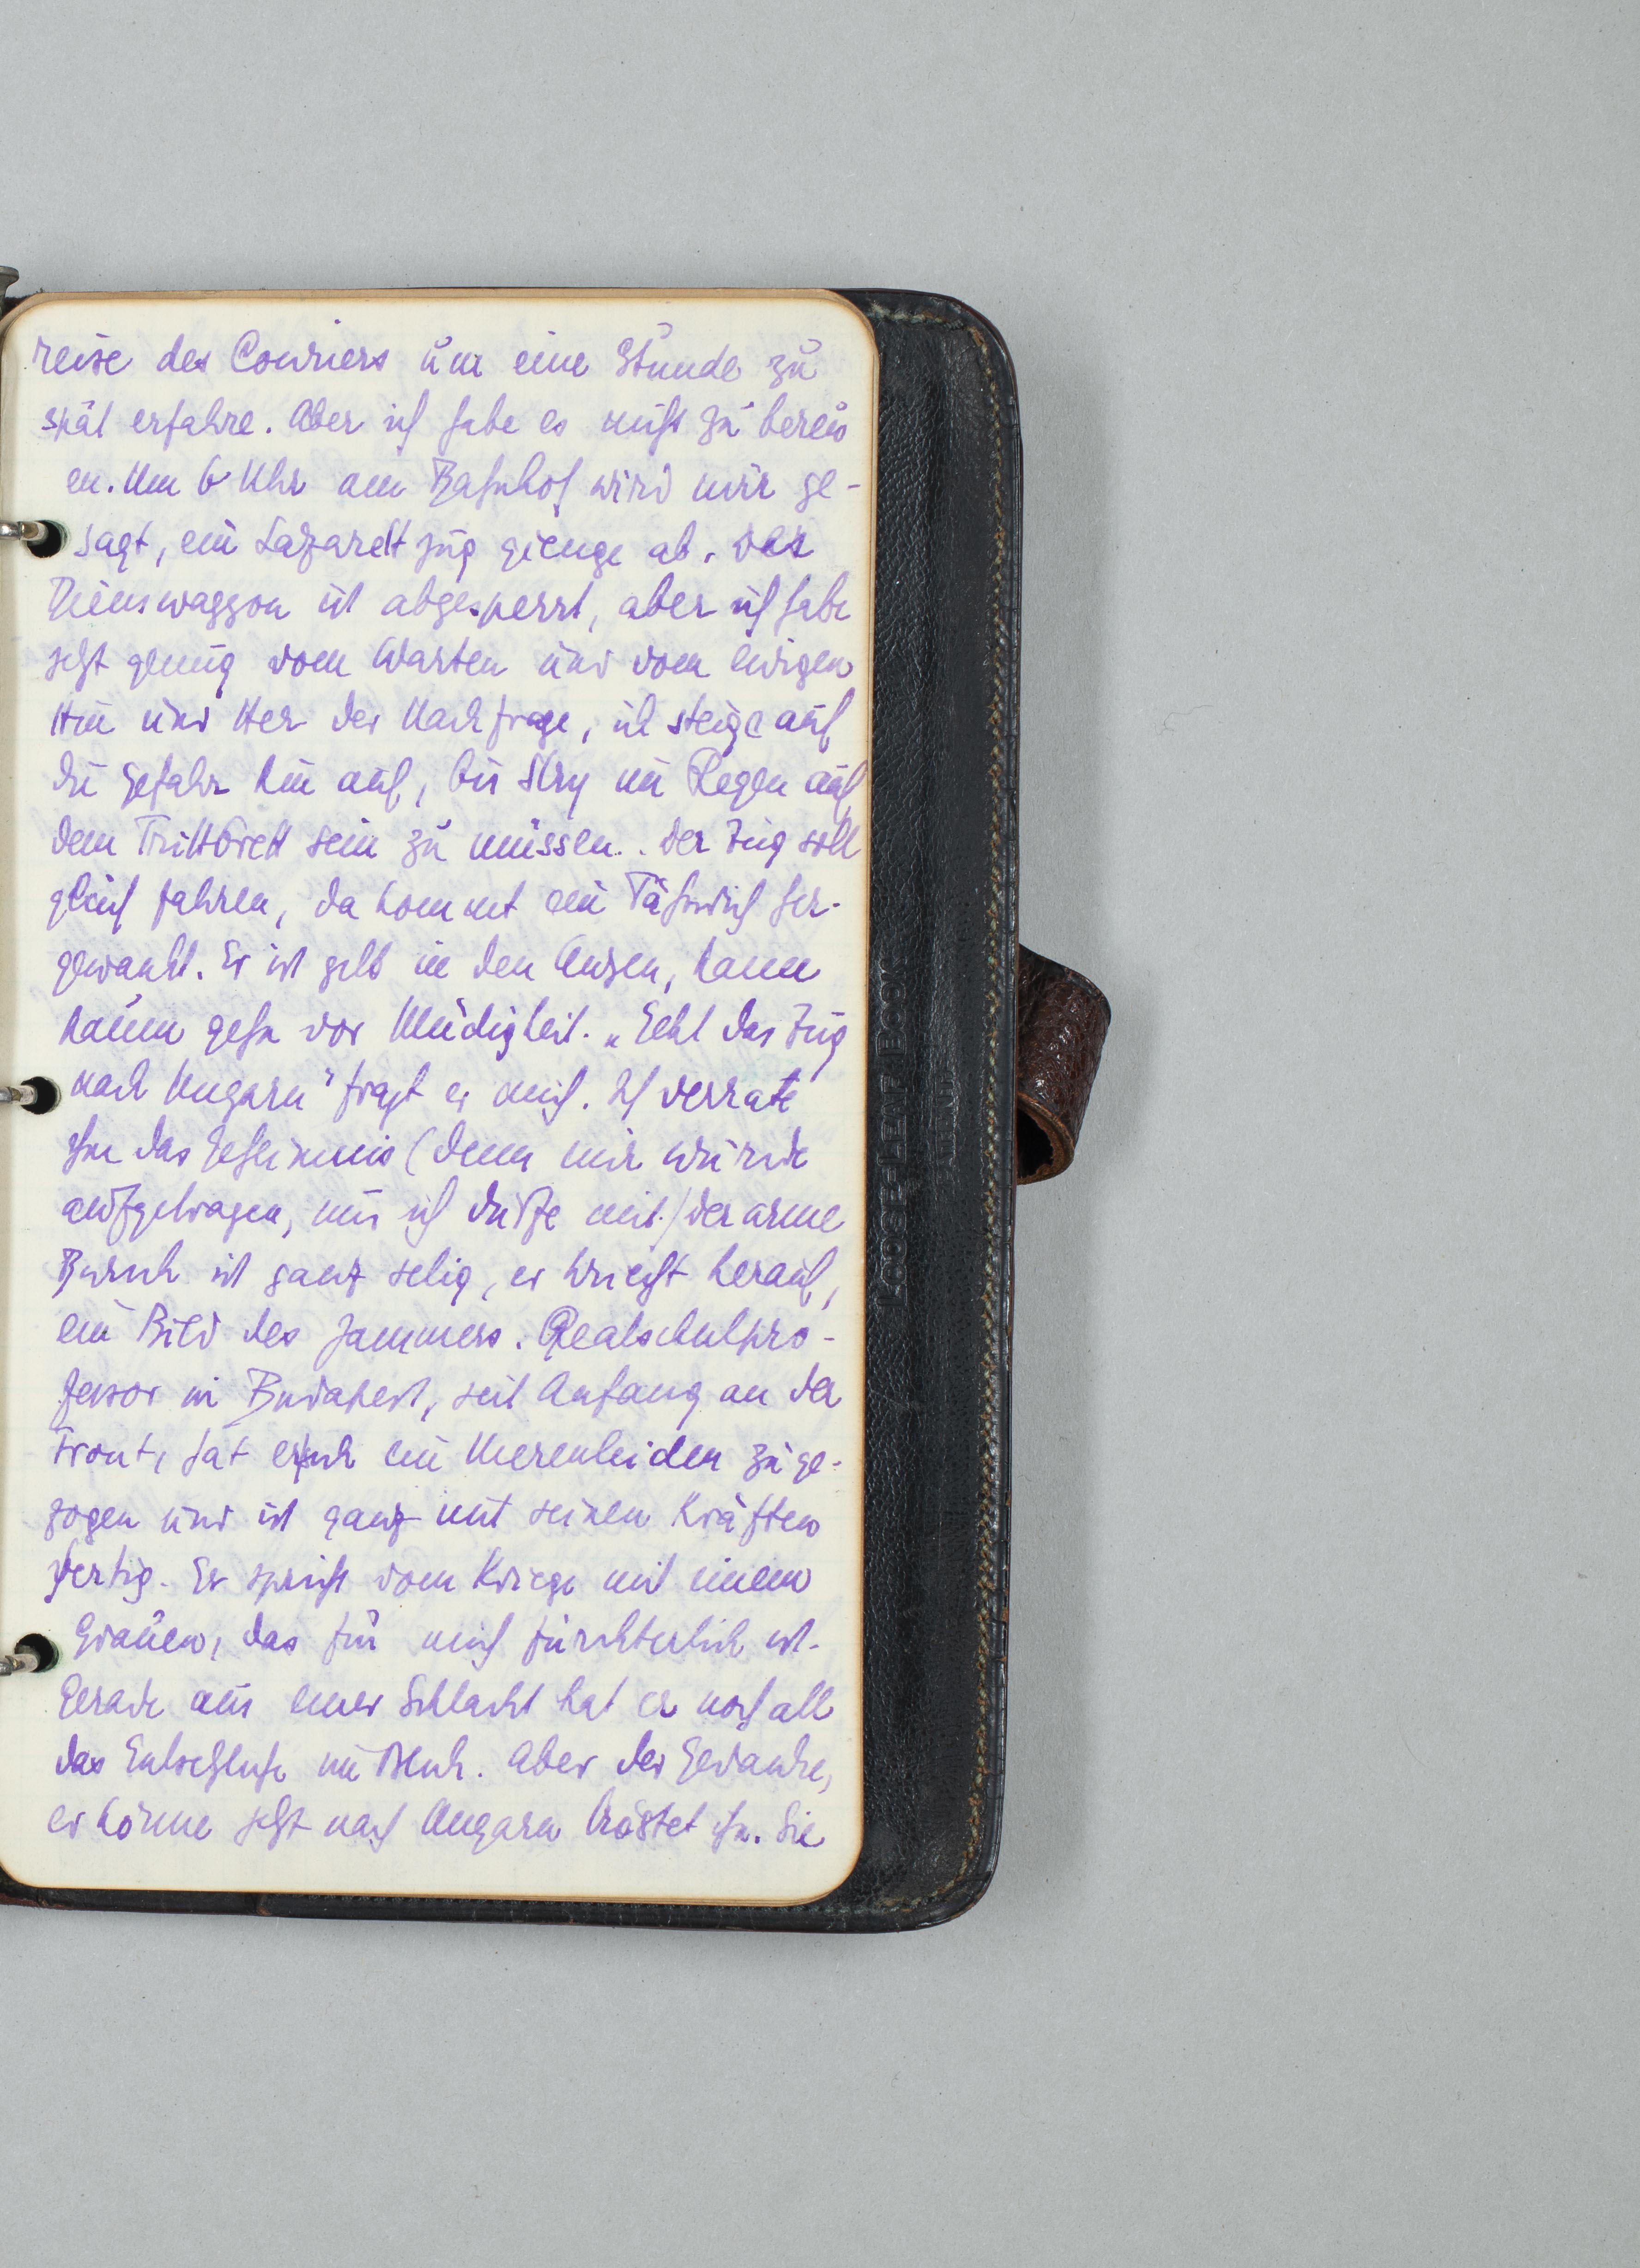 reise des Couriers um eine Stunde zu
spät erfahre. Aber ich habe es nicht zu bereu
en. Um 6 Uhr am Bahnhof wird mir ge-
sagt, ein Lazarettzug gienge ab. Der
Dienstwaggon ist abgesperrt, aber ich habe
jetzt genug vom Warten und vom ewigen
Hin und Her der Nachfrage, ich steige auf
die Gefahr hin auf, bis Stry im Regen auf
dem Trittbrett sein zu müssen. Der Zug soll
gleich fahren, da kommt ein Fähnrich her-
gewankt. Er ist gelb in den Augen, kann
kaum gehn vor Müdigkeit. „Geht das Zug
nach Ungarn" fragt er mich. Ich verrate
ihm das Geheimnis (denn mir wurde
aufgetragen, nur ich dürfe mit) der arme
Bursch ist ganz selig, er kriecht herauf,
ein Bild des Jammers. Realschulpro-
fessor in Budapest, seit Anfang an der
Front, hat er sich ein Nierenleiden zuge-
zogen und ist ganz mit seinen Kräften
fertig. Er spricht vom Kriege mit einem
Grauen, das für mich fürchterlich ist.
Gerade aus einer Schlacht hat er noch all
das Entsetzliche im Blick. Aber der Gedanke,
er könne jetzt nach Ungarn tröstet ihn. Sie
LOOSE-LEAF BOOK